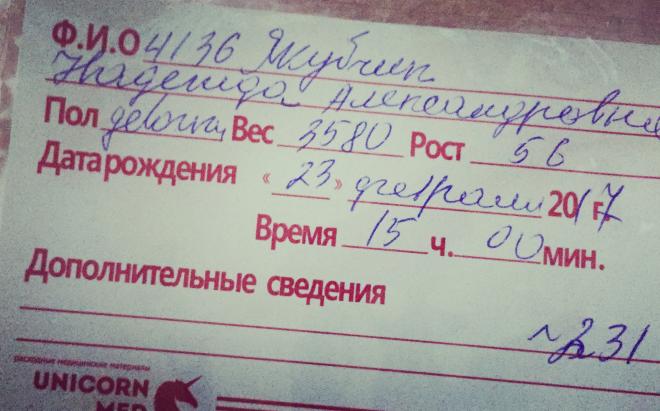 Ф.И.О 4136 Якубчик
Надежда Александровна
Пол девочка Вес 3580 Рост 56
Дата рождения « 23 » февраля 2017 г.
Время 15 ч. 00 мин.
Дополнительные сведения
231
расходные медицинские материалы
UNICORN
MED